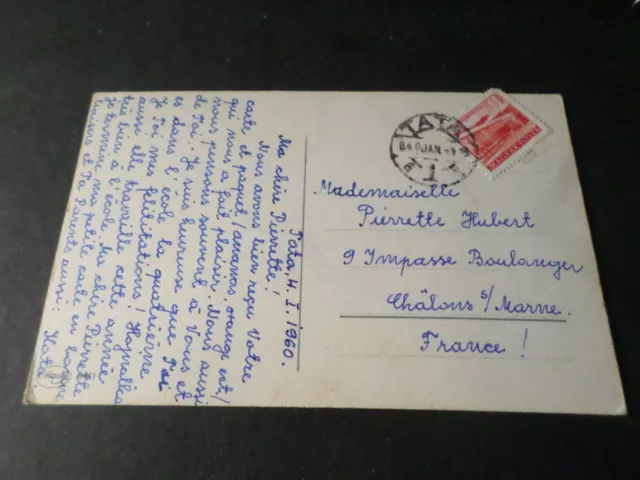 Tata, 4. I. 1960.
Ma chère Pierrette!
Nous avons bien reçu Votre
carte et paquet /ananas, orange ect./
qui nous a fait plaisir. Nous aussi
nous pensons souvent à Vous et
de Toi. Je suis heureuse que Toi
es dans l'école la quatrième.
Je Toi mes félicitations! Hajnalka
aussi elle travaille cette année
très bien à l'école. Ma chère Pierrette
je termine ma petite carte en
baisers et Ta parents aussi: Kati
TATA
960 JAN
1
MAGYAR POSTA
Mademoiselle
Pierrette Hubert
9 Impasse Boulanger
Châlons s/Marne.
France!